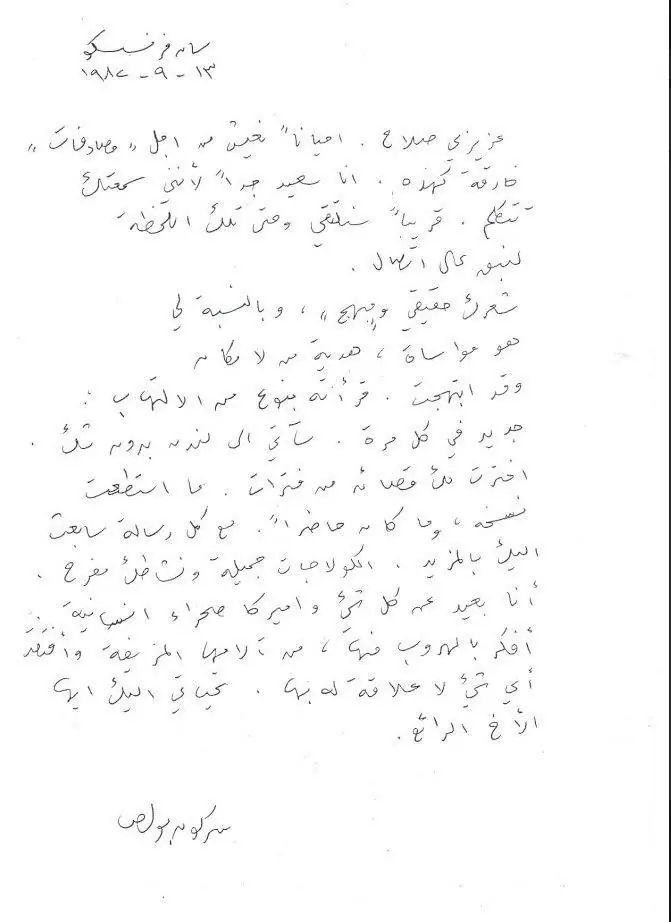 سان فرنسسكو
١٣ - ٩ - ١٩٨٧
عزيزي صلاح . احياناً نعيش من اجل « مصادفات »
خارقة كهذه . انا سعيد جداً لأنني سمعتك
تتكلم . قريباً سنلتقي وحتى تلك اللحظة
لنبق على اتصال .
شعرك حقيقي ومبهج ، وبالنسبة لي
هو مواساة ، هدية من لا مكان
وقد ابتهجت . قرأته بنوع من الالتهاب :
جديد في كل مرة . سآتي الى لندن بدون شك .
اخترت لك قصائد من فترات . ما استطعت
نسخه ، وما كان حاضراً . مع كل رسالة سابعث
اليك بالمزيد . الكولاجات جميلة ونشاطك مفرح .
أنا بعيد عن كل شيء واميركا صحراء انسانية .
أفكر بالهروب منها ، من آلامها المزيفة وأفتقد
أي شيء لا علاقة له بها . تحياتي اليك ايها
الأخ الرائع .
سركون بولص